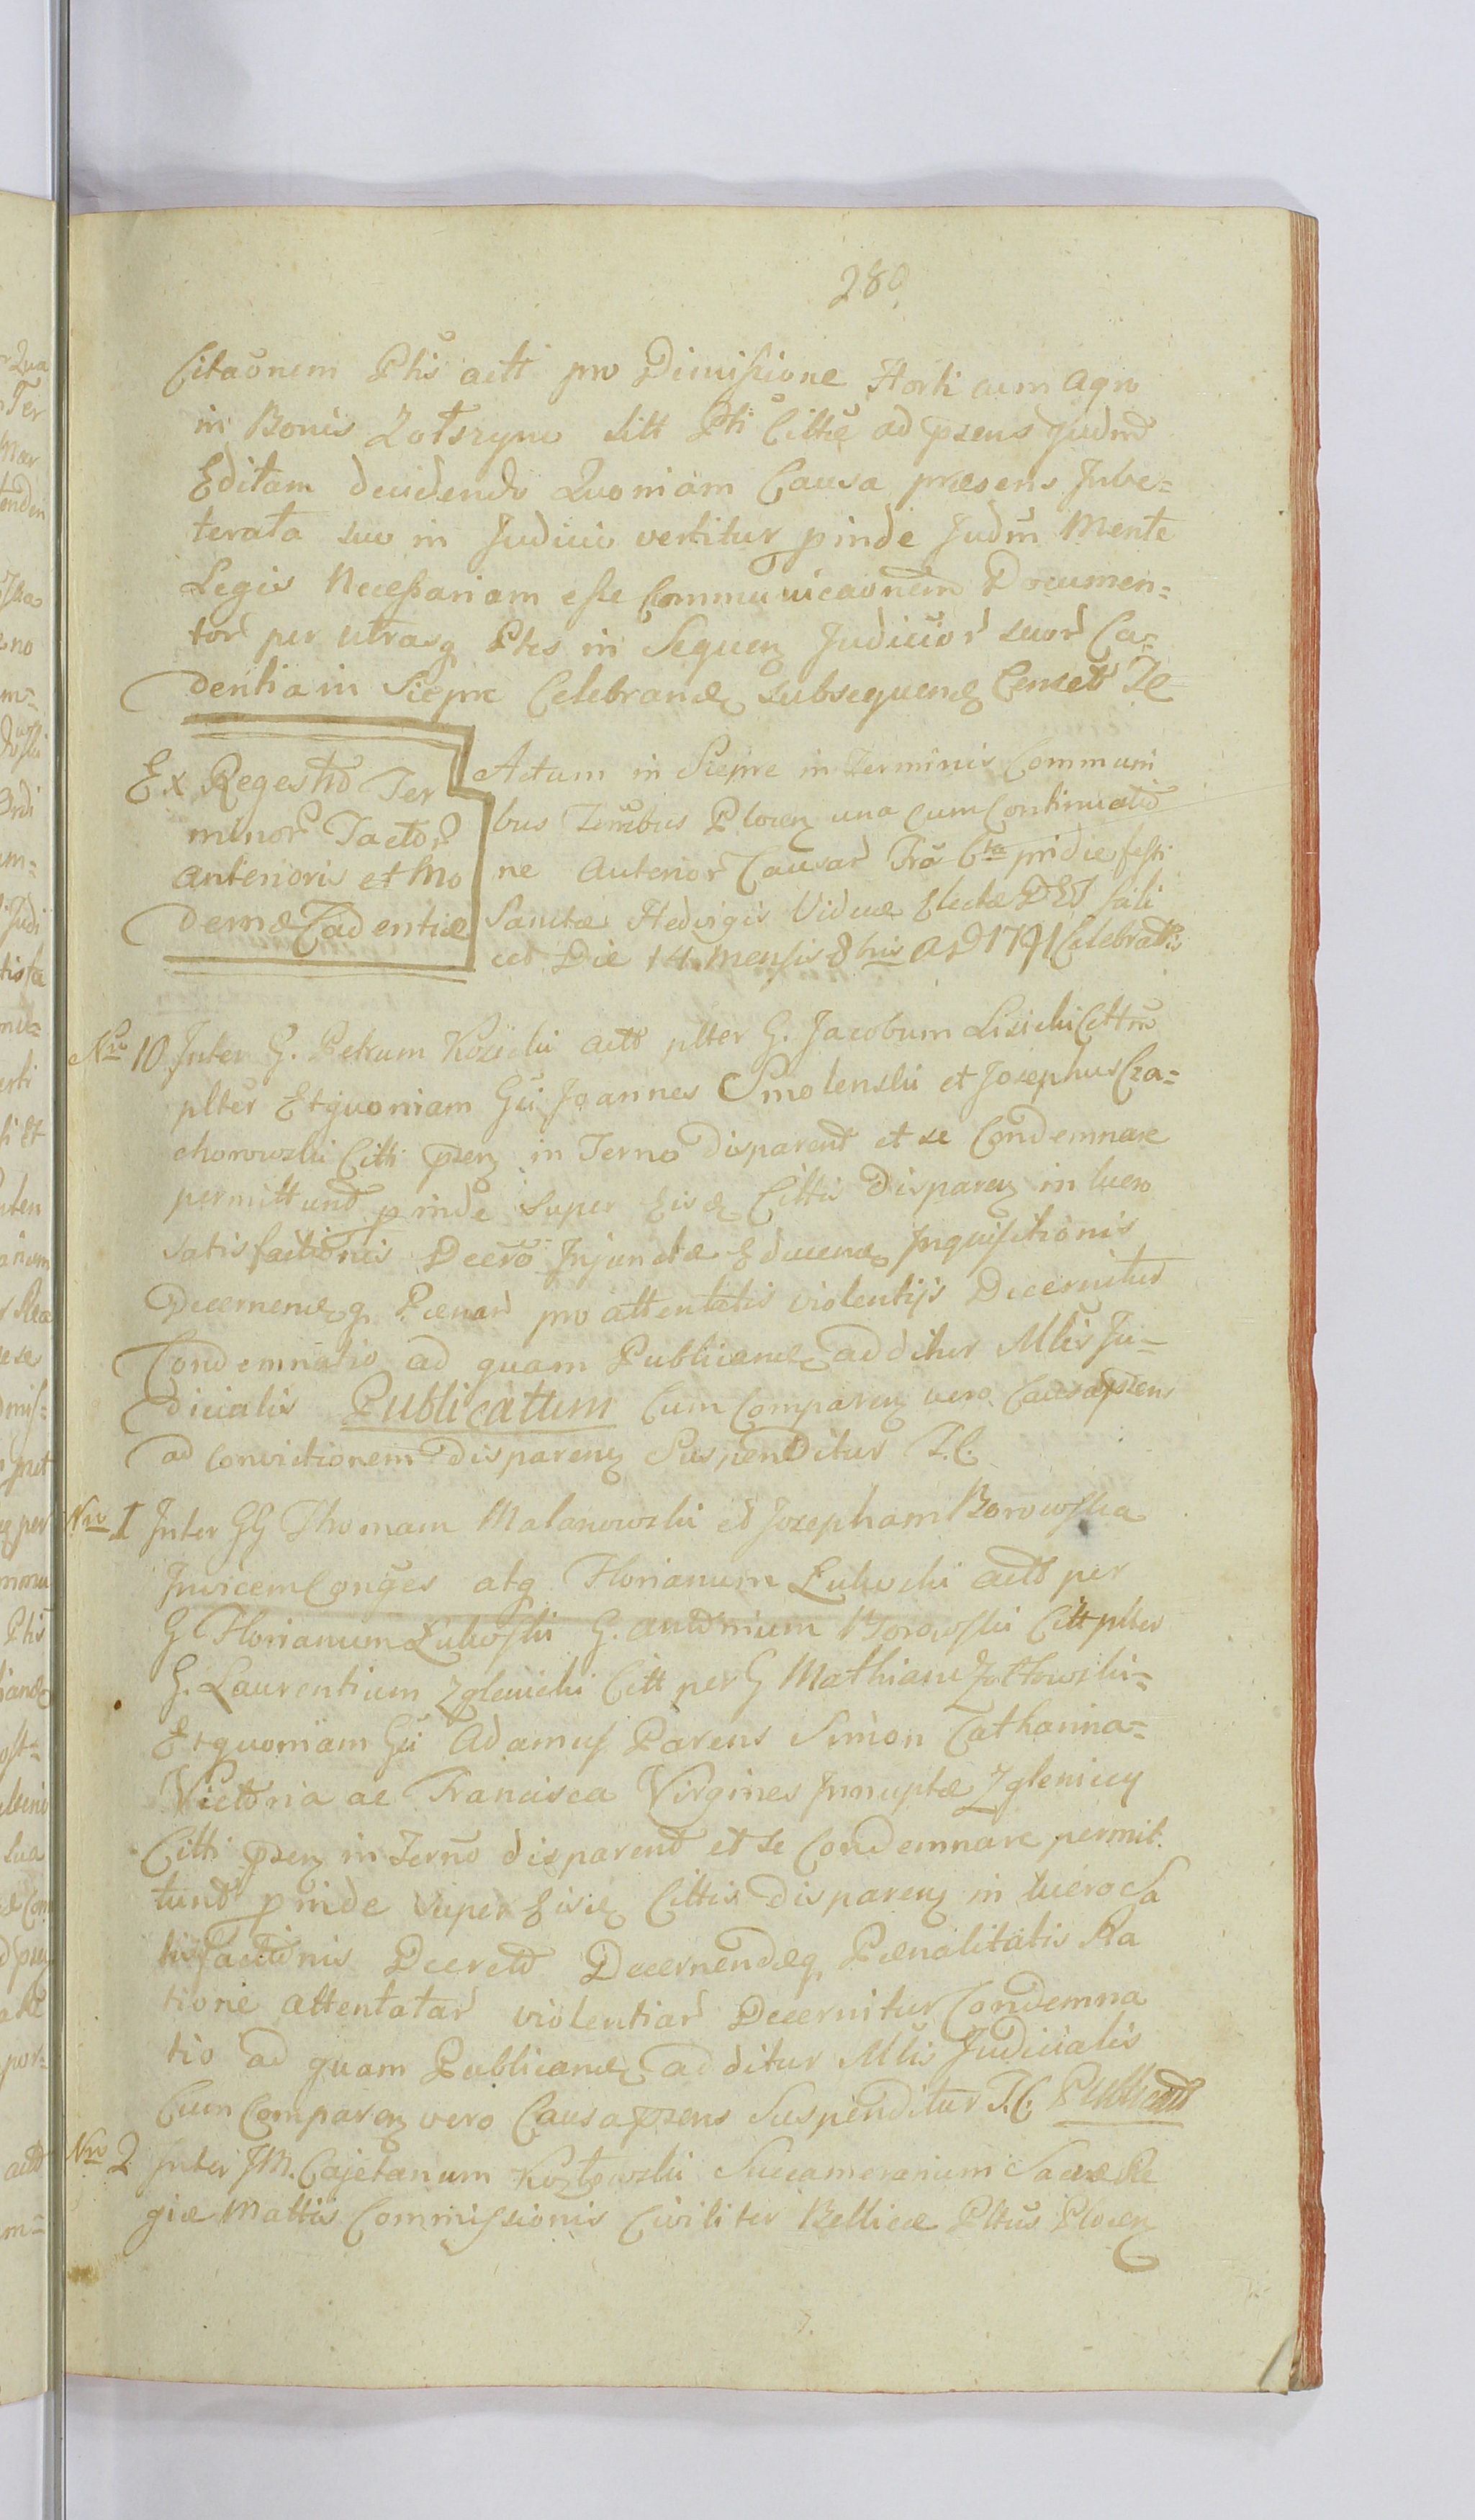 280
Citaõnem Ptis actt pro Dimissione Horti cum Agro
in Bonis Zołszyno sitt Pti Cittũ ad pzens Judm̃
Editam decidendo Quoniam Causa præsens Inve=
terata suo in Judicio vertitur pinde Judm̃ Mente
Legis Necessariam esse Communicaõnem Documen=
tor per utrasq Ptes in Sequen Judicior suor Ca=
dentia in Siepre Celebrand subsequend Censet
Ex Regestro Ter
minor Tactor
Anterioris et Mo
dernæ Cadentiæ
Actum in Siepre in Terminis Communi
bus Trribus Plocen una cum Continuatio
ne Anterior Causar Fra 6ta pridie festi
Sanctæ Hedvigis Viduæ Electæ sáli
cet Die 14 Mensis 8bris AD 1791 Celebratis
Nro 10 Inter G. Petrum Kozicki actt plter G. Jacobum Lisicki Cittm̃
plter Etquoniam Gũ Joannes Smolenski et Josephus Cza=
chorowski Citti pzen in Termo disparent et se Condemnare
permittunt pinde super Eisd Cittis Disparen in luero
satisfactionis Decro Injunctæ Educend Inquisitionis
Decernendq Pænar pro attentatis violentijs Decernitur
Condemnatio ad quam Publicand additur Mlis Ju=
dicialis Publicattum Cum Comparen vero Causa pzens
ad Convictionem disparen Suspenditur T.C.
Nro 1 Inter GG Thomam Malanowski et Josepham Borowska
Invicem Conges atq Florianum Łukoski actt per
G Florianum Łukoski G. Antonium Borowski Citt plter
G. Laurentium Zglenicki Citt per G Mathiam Żółtowski=
Etquoniam Gũ Adamus Parens Simon Catharina=
Victoria ac Francisca Virgines Innuptæ Zgleniccy
Citti pzen in Termo disparent et se Condemnare permit
tunt pinde super Eisd Cittis disparen in luero Sa
tisfactionis Decreto Decernendæq Pænalitatis Ra
tione attentatar violentiar Decernitur Condemna
tio ad quam Publicand additur Mlis Judicialis
Cum Comparen vero Causa pzens Suspenditur T.C. Publicatt
Nro 2 Inter JM. Cajetanum Kozłowski Succamerarium Sacræ Re
giæ Mattis Commissionis Civiliter Bellicæ Pltus Plocen